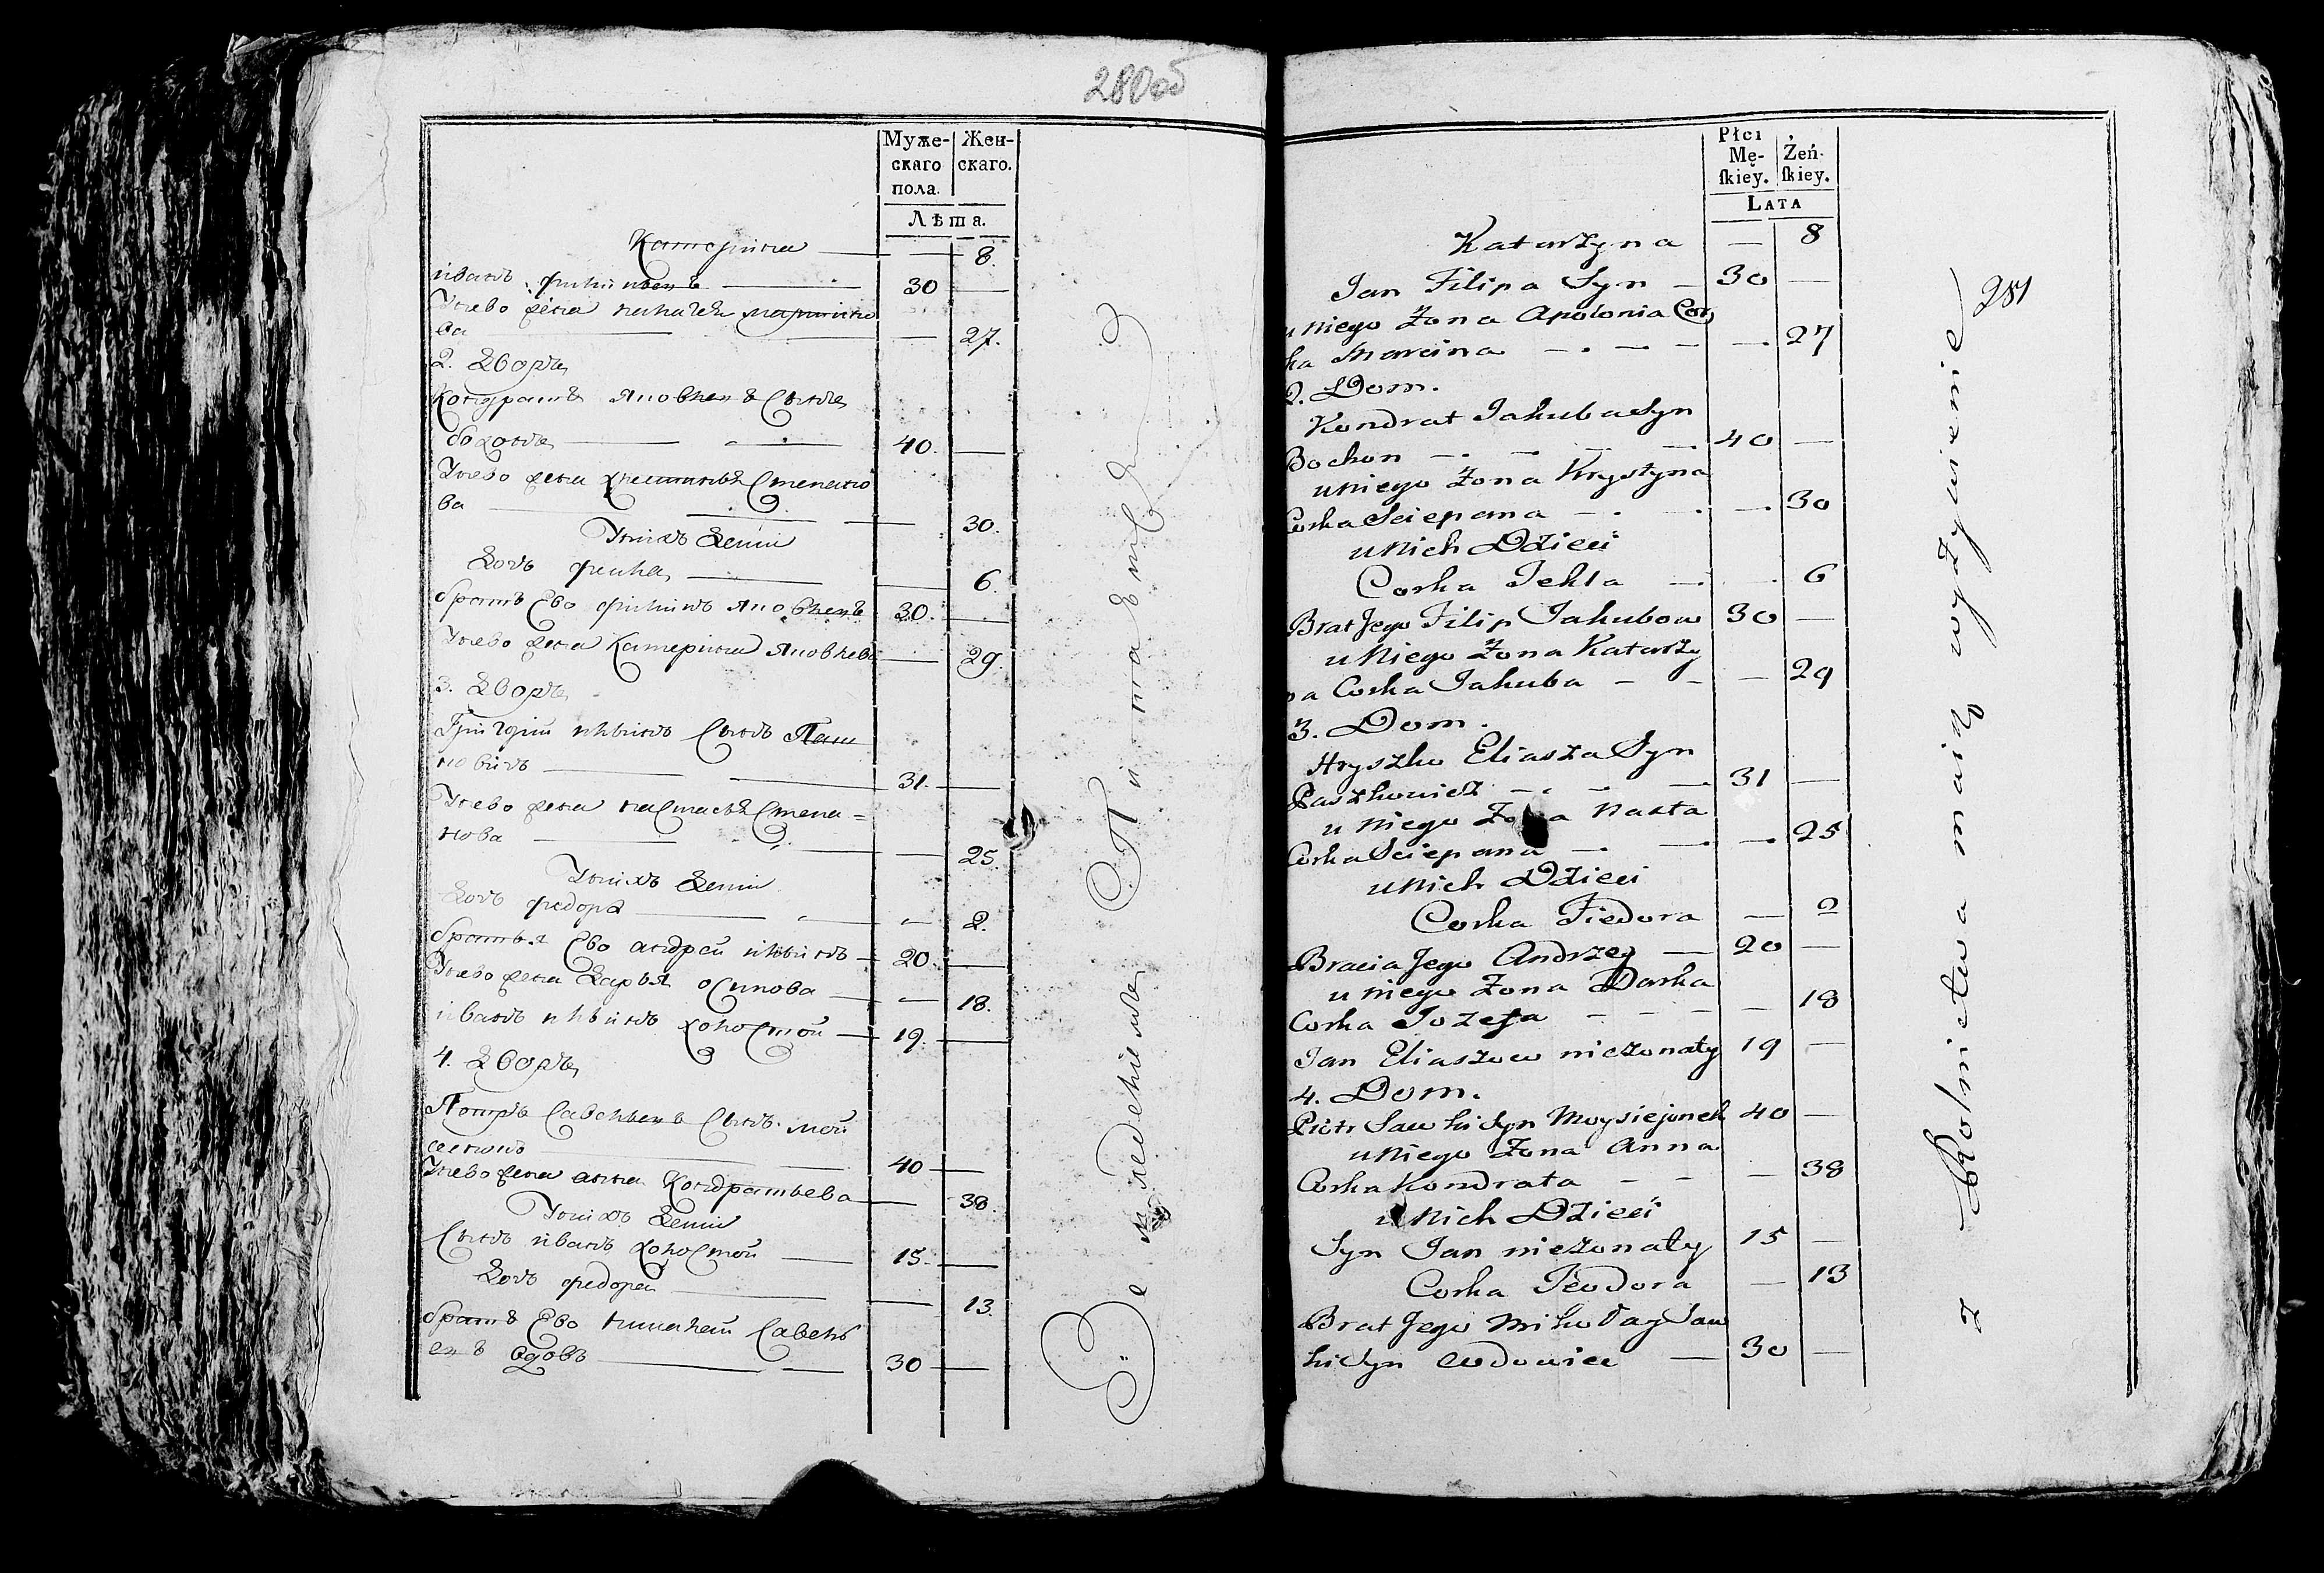 280об
Муже-
скаго
пола.
Жен-
скаго.
Лѣта.
Катерина — — 8.
иванъ филиповъ — 30 —
Унево жена палагѣя мартино
ва — — 27.
2. Дворъ
Кондратъ яковлевъ Сынъ
боханъ — 40. —
Унево жена христинья Степано
ва — — 30.
Унихъ Дети
Дочь фекла — — 6.
братъ Ево филипъ яковлевъ 30. —
Унево жена Катерина яковлева — 29.
3. Дворъ
Григорий ильинъ Сынъ Паш
ковичъ — 31. —
Унево жена настасья Степа=
нова — — 25.
Унихъ Дети
Дочь федора — — 2.
братья Ево андрей ильинъ — 20. —
Унево жена Дарья осипова — — 18.
иванъ ильинъ холостой — 19. —
4. Дворъ
Петръ Савельевъ Сынъ мой
сеенокъ — 40 —
Унево жена анна Кондратьева — 38.
Унихъ Дети
Сынъ иванъ холостой — 15. —
Дочь федора — — 13.
братъ Ево николай Савель
евъ вдовъ — 30 —
Земледелиемъ Питается
281
Płci
Mę-
ſkiey.
Żeń-
ſkiey.
Lata
Katarzyna — 8
Jan Filipa Syn — 30 —
u niego Zona Apolonia Cor
ka Marcina — — 27
2. Dom.
Kondrat Jakuba Syn
Bochon — 40 —
u niego Zona Krystyna
Corka Sciepana — — 30
u nich Dzieci
Corka Tekla — — 6
Brat Jego Filip Jakubow 30 —
u Niego Zona Katarzy
na Corka Jakuba — — 29
3. Dom.
Hryszko Eliasza Syn
Paszkowicz — 31 —
u niego Zona Nasta
Corka Sciepana — — 25
u nich Dzieci
Corka Fiedora — 2
Bracia Jego Andrzey — 20 —
u niego Zona Darka
Corka Jozefa — — 18
Jan Eliaszow niezonaty 19 —
4. Dom.
Piotr Sawki Syn Moysiejonek 40 —
u niego Zona Anna
Corka Kondrata — — 38
u nich Dzieci
Syn Jan niezonaty 15 —
Corka Teodora — 13
Brat Jego Mikołay Saw
ki Syn wdowiec — 30 —
z Rolnictwa maią wyżywienie